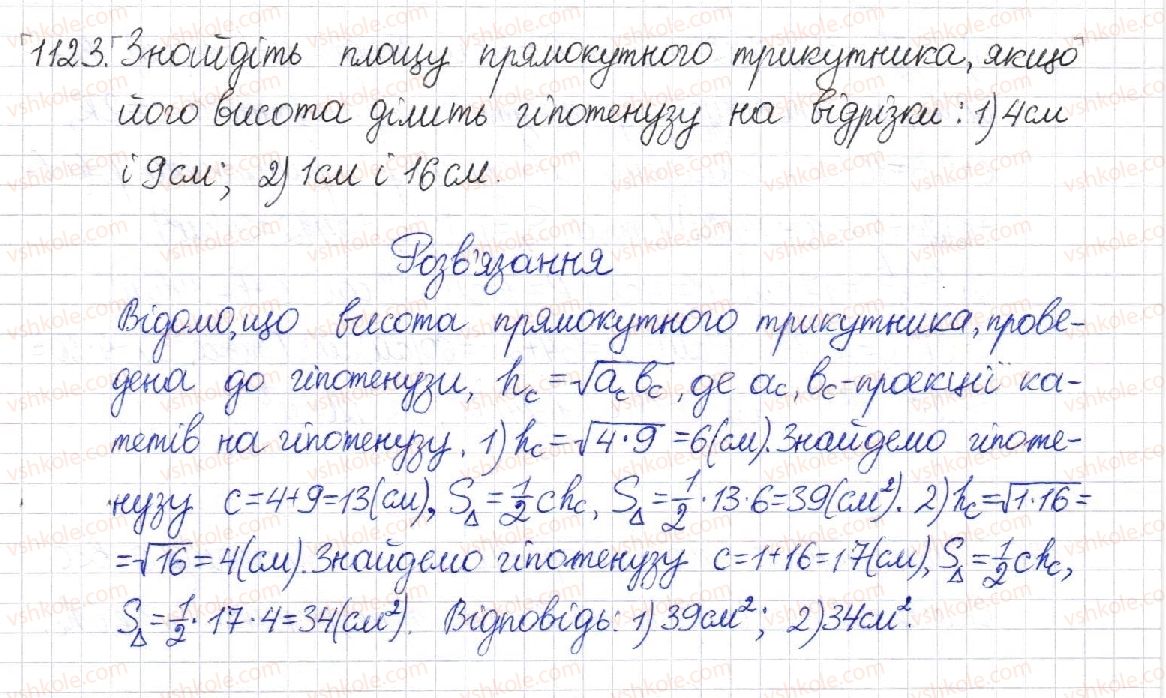 1123. Знайдіть площу прямокутного трикутника, якщо
його висота ділить гіпотенузу на відрізки: 1) 4 см
і 9 см; 2) 1 см і 16 см.
Розв'язання
Відомо, що висота прямокутного трикутника, прове-
дена до гіпотенузи, h_c = √(a_c b_c), де a_c, b_c - проекції ка-
тетів на гіпотенузу. 1) h_c = √(4·9) = 6 (см). Знайдемо гіпоте-
нузу c = 4+9 = 13 (см), S_Δ = 1/2 c h_c, S_Δ = 1/2 · 13 · 6 = 39 (см²). 2) h_c = √(1·16) =
= √16 = 4 (см). Знайдемо гіпотенузу c = 1+16 = 17 (см), S_Δ = 1/2 c h_c,
S_Δ = 1/2 · 17 · 4 = 34 (см²). Відповідь: 1) 39 см²; 2) 34 см².
vshkole.com